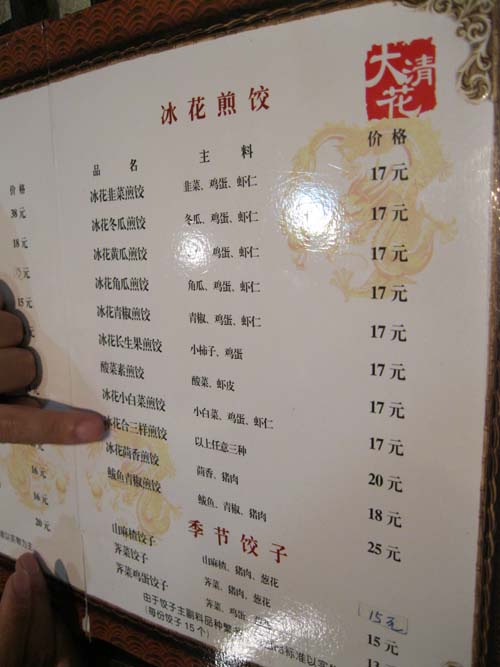 大清花
冰花煎饺
品名 主料 价格
冰花韭菜煎饺 韭菜、鸡蛋、虾仁 17元
冰花冬瓜煎饺 冬瓜、鸡蛋、虾仁 17元
冰花黄瓜煎饺 鸡蛋、虾仁 17元
冰花角瓜煎饺 角瓜、鸡蛋、虾仁 17元
冰花青椒煎饺 青椒、鸡蛋、虾仁 17元
冰花长生果煎饺 小柿子、鸡蛋 17元
酸菜素煎饺 酸菜、虾皮 17元
冰花小白菜煎饺 小白菜、鸡蛋、虾仁 17元
冰花合三样煎饺 以上任意三种 20元
冰花茴香煎饺 茴香、猪肉 18元
鲅鱼青椒煎饺 鲅鱼、青椒、猪肉 25元
季节饺子
山麻楂饺子 山麻楂、猪肉、葱花 15元
荠菜饺子 荠菜、猪肉、葱花 15元
荠菜鸡蛋饺子 荠菜、鸡蛋
由于饺子主副料品种繁
标准以实
(每份饺子15个)
价格
38元
18元
元
15元
16元
16元
20元